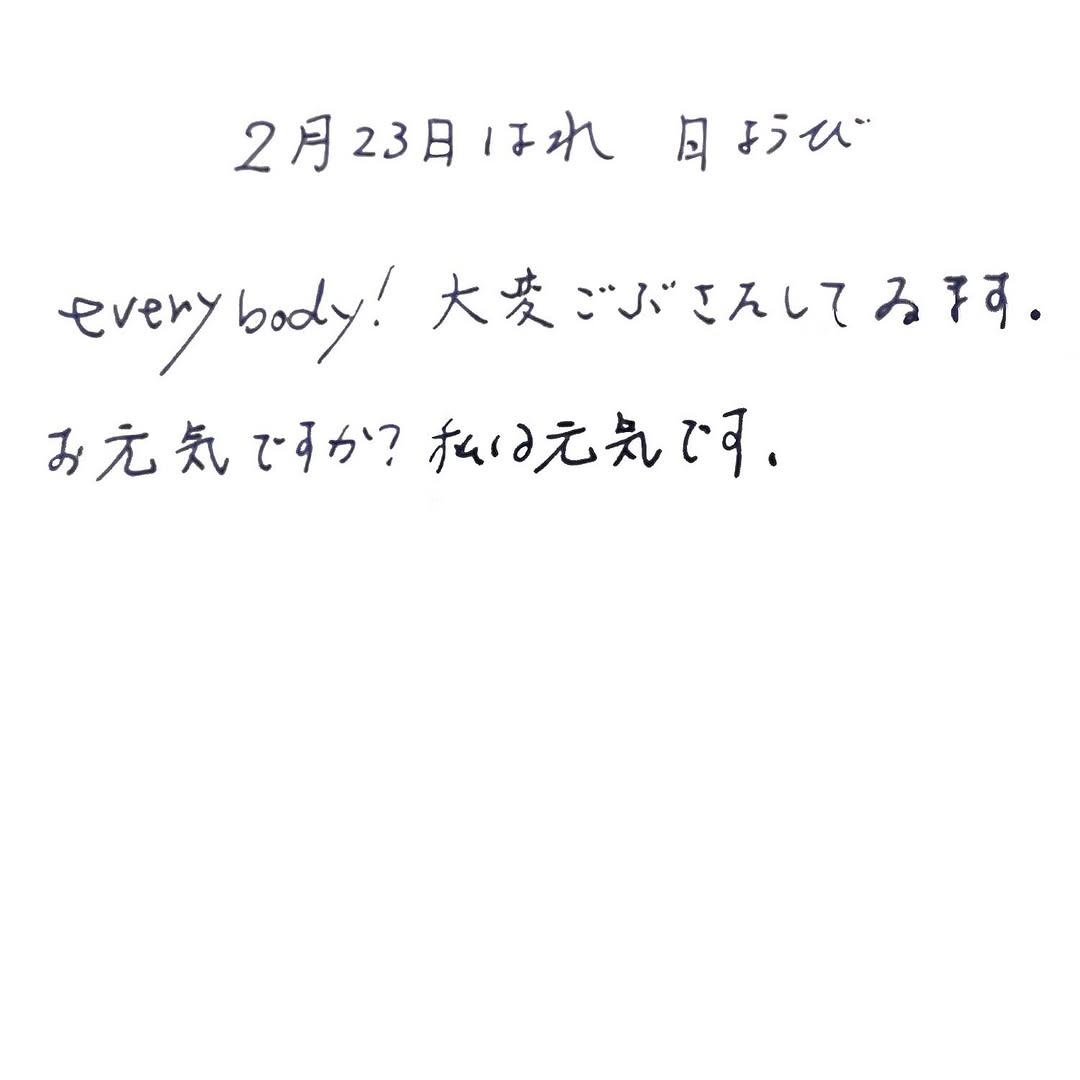 2月23日はれ 日ようび
everybody! 大変ごぶさんしてゐます.
お元気ですか? 私は元気です.